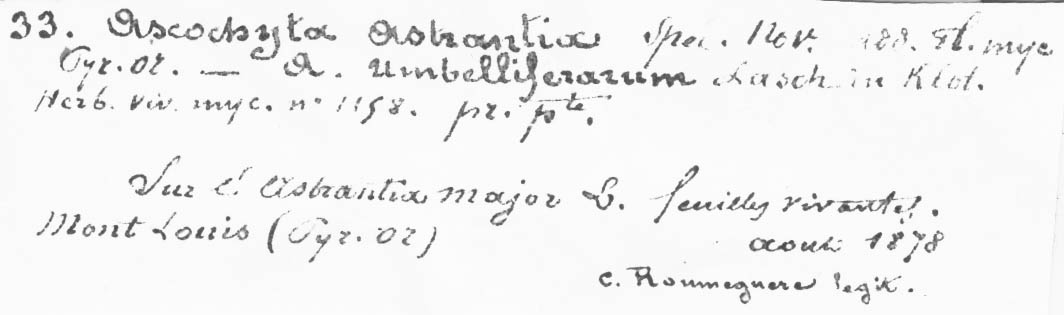 33. Ascochyta Astrantiæ Spec. Nov. Fl. myc
Pyr. or. — A. Umbelliferarum Lasch in Klot.
Herb. viv. myc. n° 1158. pr. pte.
Sur l'Astrantia major L. feuilles vivantes.
Mont Louis (Pyr. or)
aout 1878
C. Roumeguere legit.